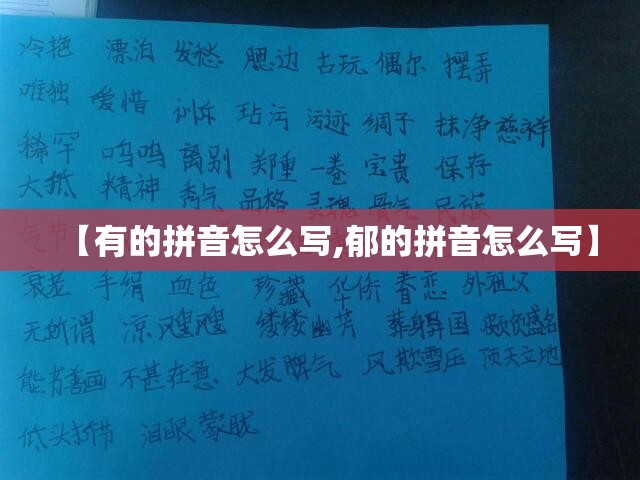 冷艳 漂泊 发愁 腮边 古玩 偶尔 摆弄
唯独 爱惜 训斥 玷污 污迹 绸子 抹净 慈祥
稀罕 呜呜 离别 郑重 一卷 宝贵 保存
大抵 精神 秀气 品格 灵魂 骨气 民族
【有的拼音怎么写,郁的拼音怎么写】
气节
衰老 手绢 血色 珍藏 华侨 眷恋 外祖父
无所谓 凉飕飕 缕缕幽芳 葬身异国 颇负盛名
能书善画 不甚在意 大发脾气 风欺雪压 顶天立地
低头折节 泪眼蒙眬